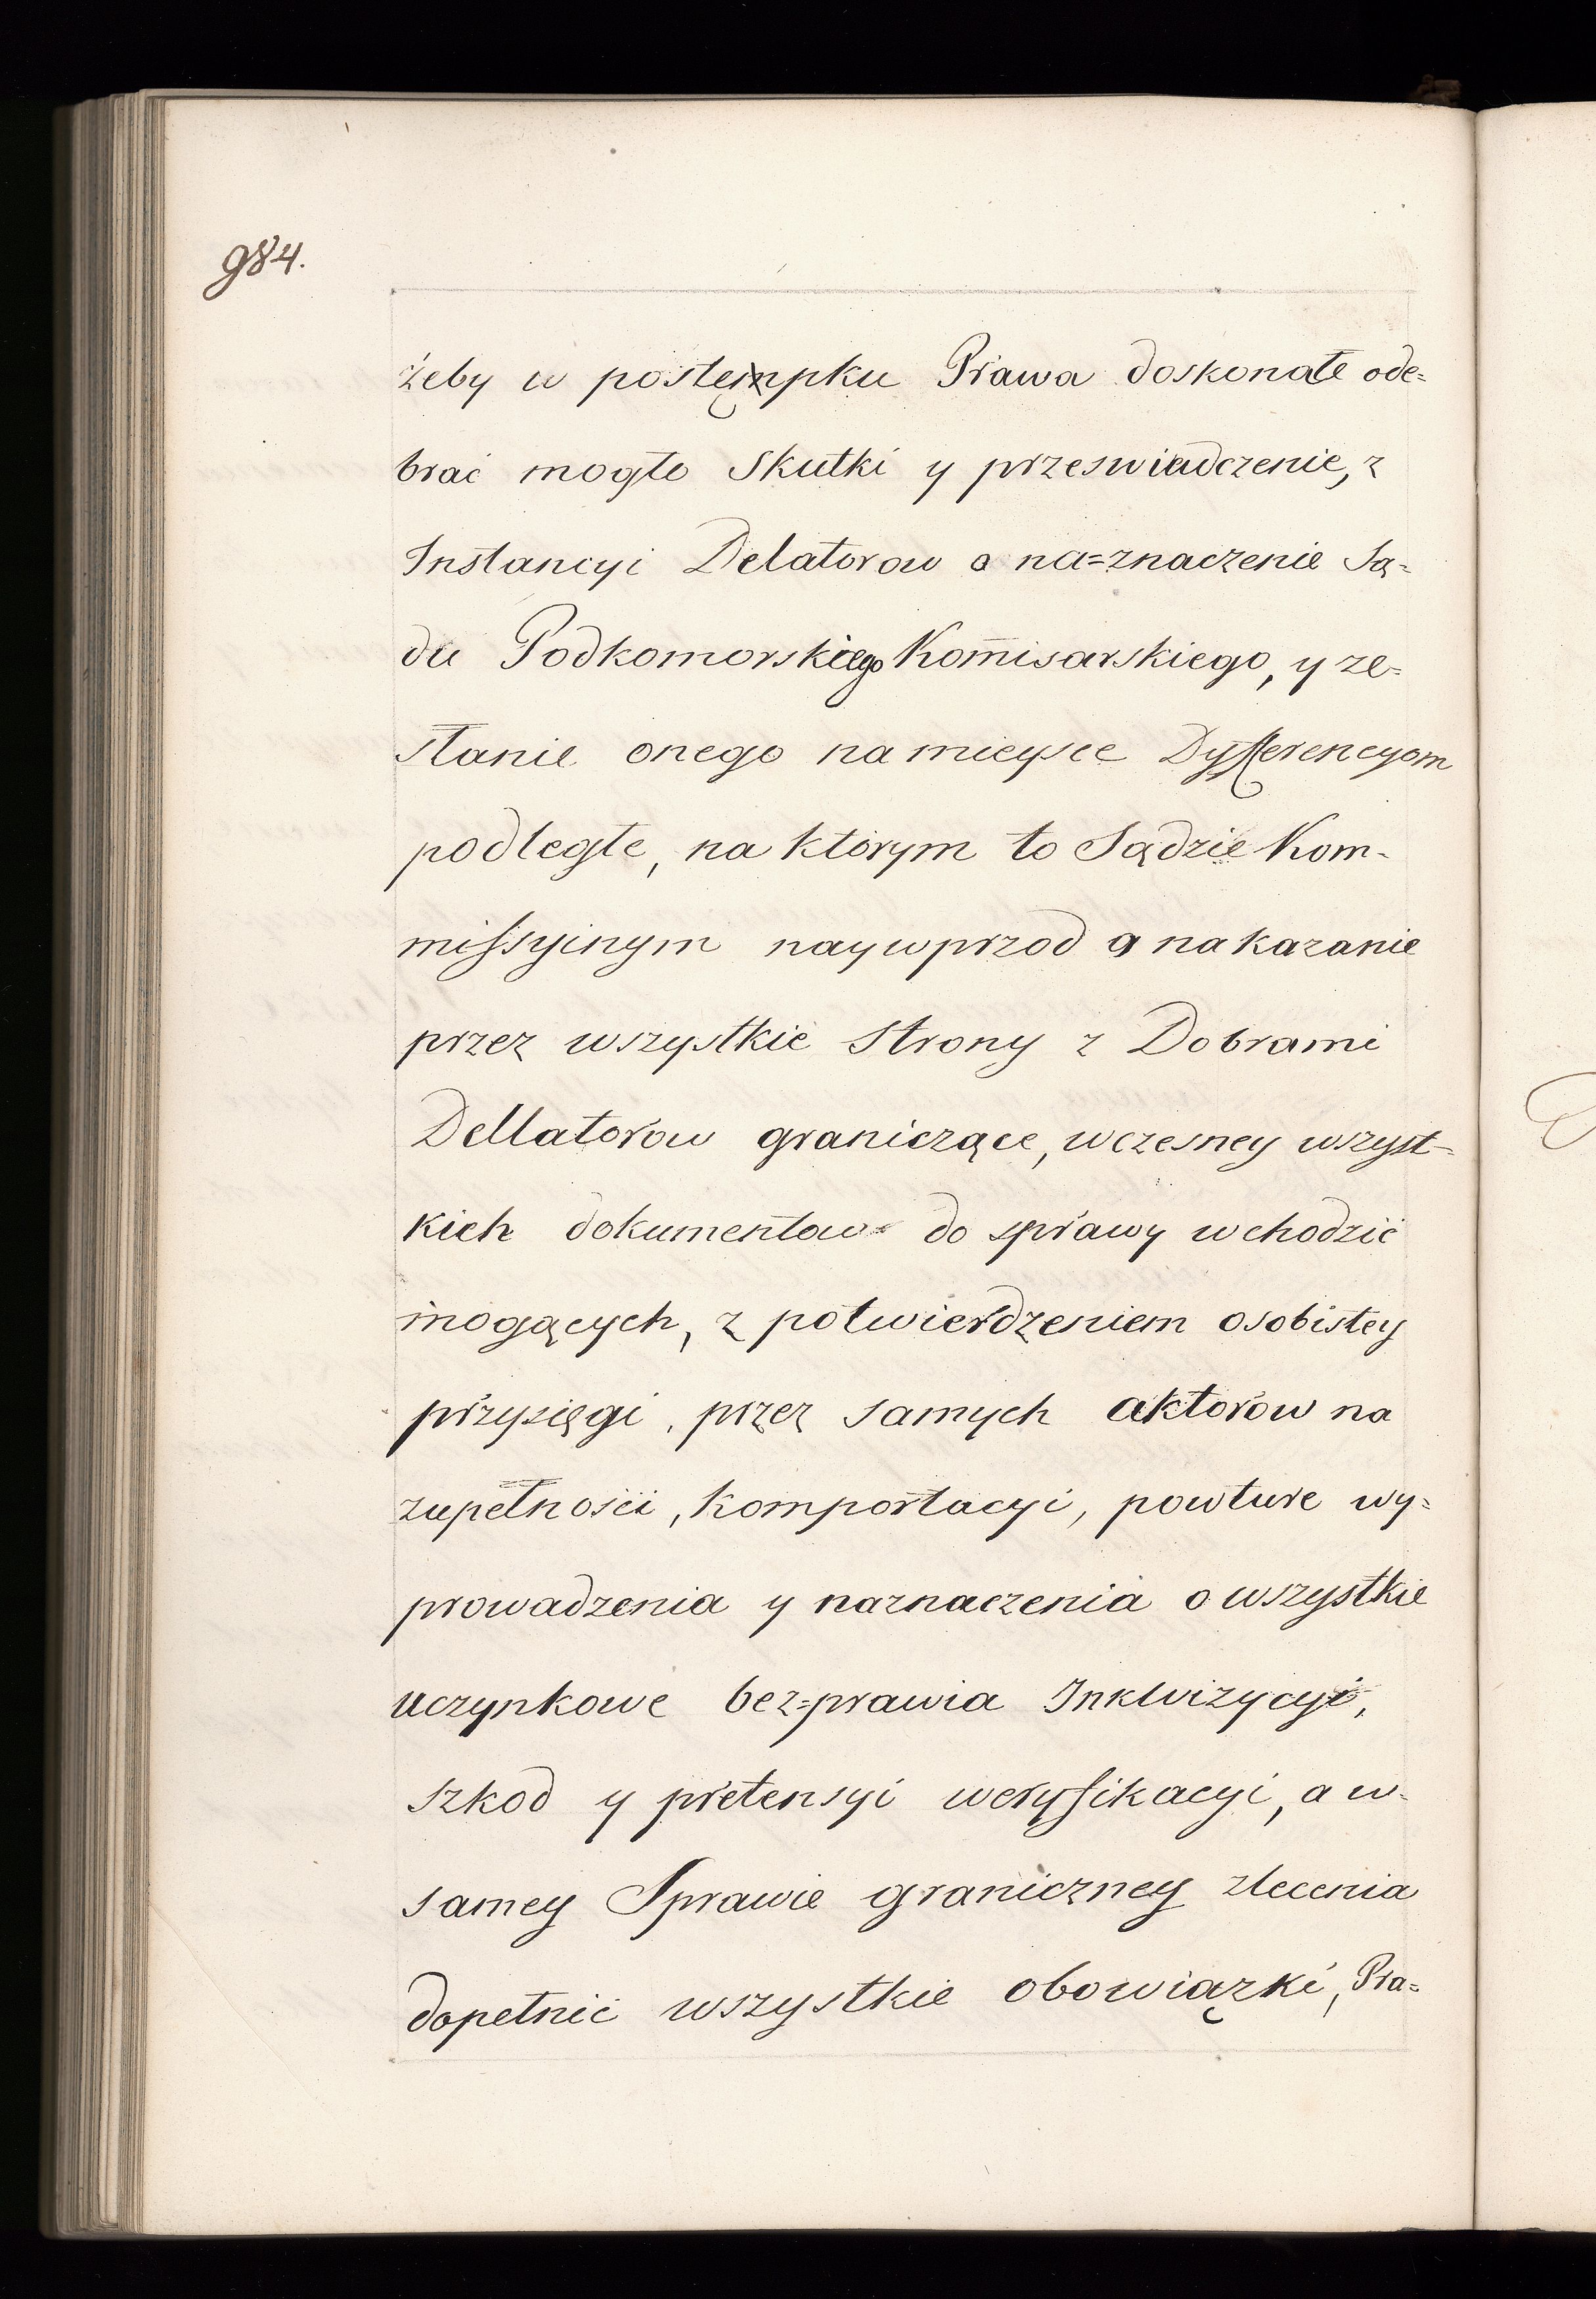 984.
żeby w postępku Prawa doskonałe ode=
brać mogło Skutki y przeswiadczenie, z
Instancyi Delatorow o na=znaczenie Są=
du Podkomorskiego Kom̄isarskiego, y ze=
słanie onego na mieysce Dyfferencyom
podległe, na ktorym to Sądzie Kom-
missyinym naywprzod o nakazanie
przez wszystkie Strony z Dobrami
Dellatorow graniczące, wczesney wszyst=
kich dokumentow do sprawy wchodzić
mogących, z potwierdzeniem osobistey
przysięgi, przez samych aktorów na
zupełności, komportacyi, powture wy=
prowadzenia y naznaczenia o wszystkie
uczynkowe bez=prawia Inkwizycyi,
szkod y pretensyi weryfikacyi, a w-
samey Sprawie graniczney zlecenia
dopełnić wszystkie obowiązki, Pra=